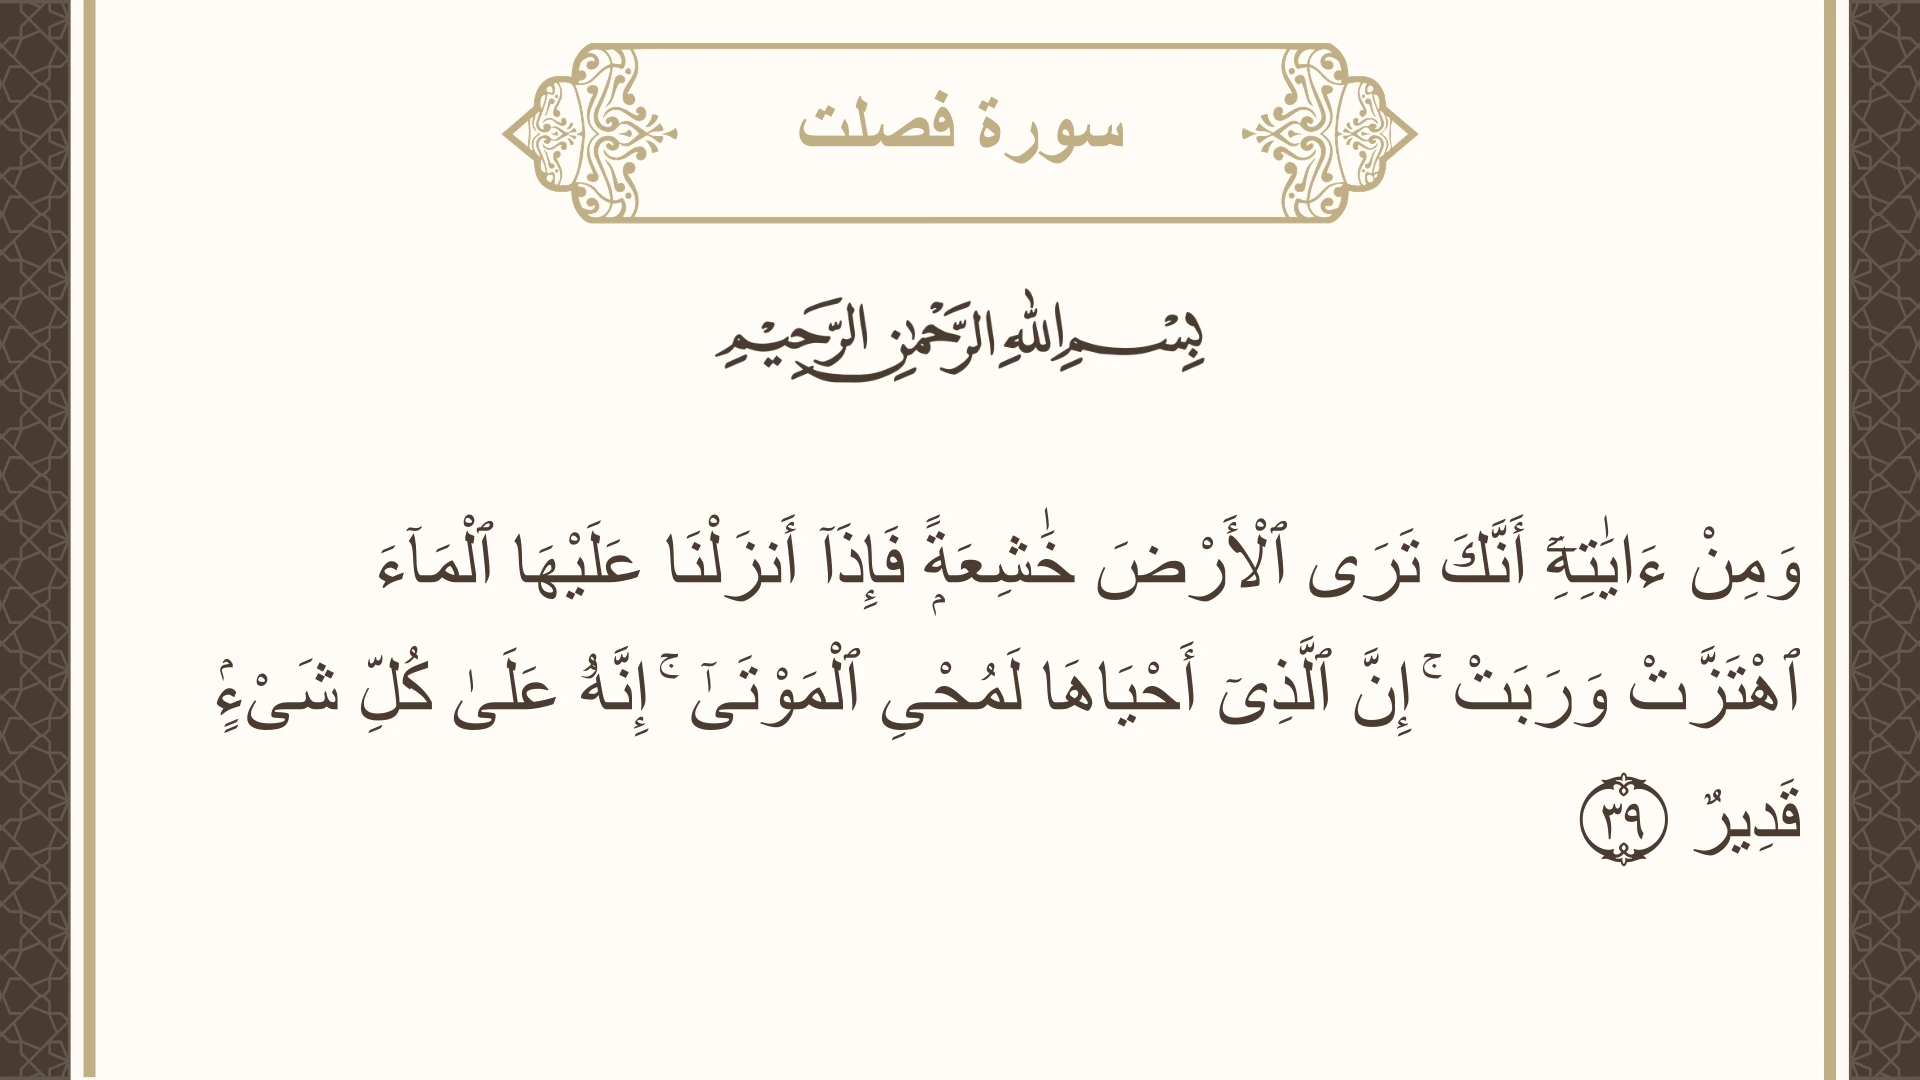 سورة فصلت
بِسْمِ اللهِ الرَّحْمٰنِ الرَّحِيْمِ
وَمِنْ ءَايَٰتِهِۦٓ أَنَّكَ تَرَى ٱلْأَرْضَ خَٰشِعَةًۭ فَإِذَآ أَنزَلْنَا عَلَيْهَا ٱلْمَآءَ
ٱهْتَزَّتْ وَرَبَتْ ۚ إِنَّ ٱلَّذِىٓ أَحْيَاهَا لَمُحْىِ ٱلْمَوْتَىٰٓ ۚ إِنَّهُۥ عَلَىٰ كُلِّ شَىْءٍۢ
قَدِيرٌ ٣٩